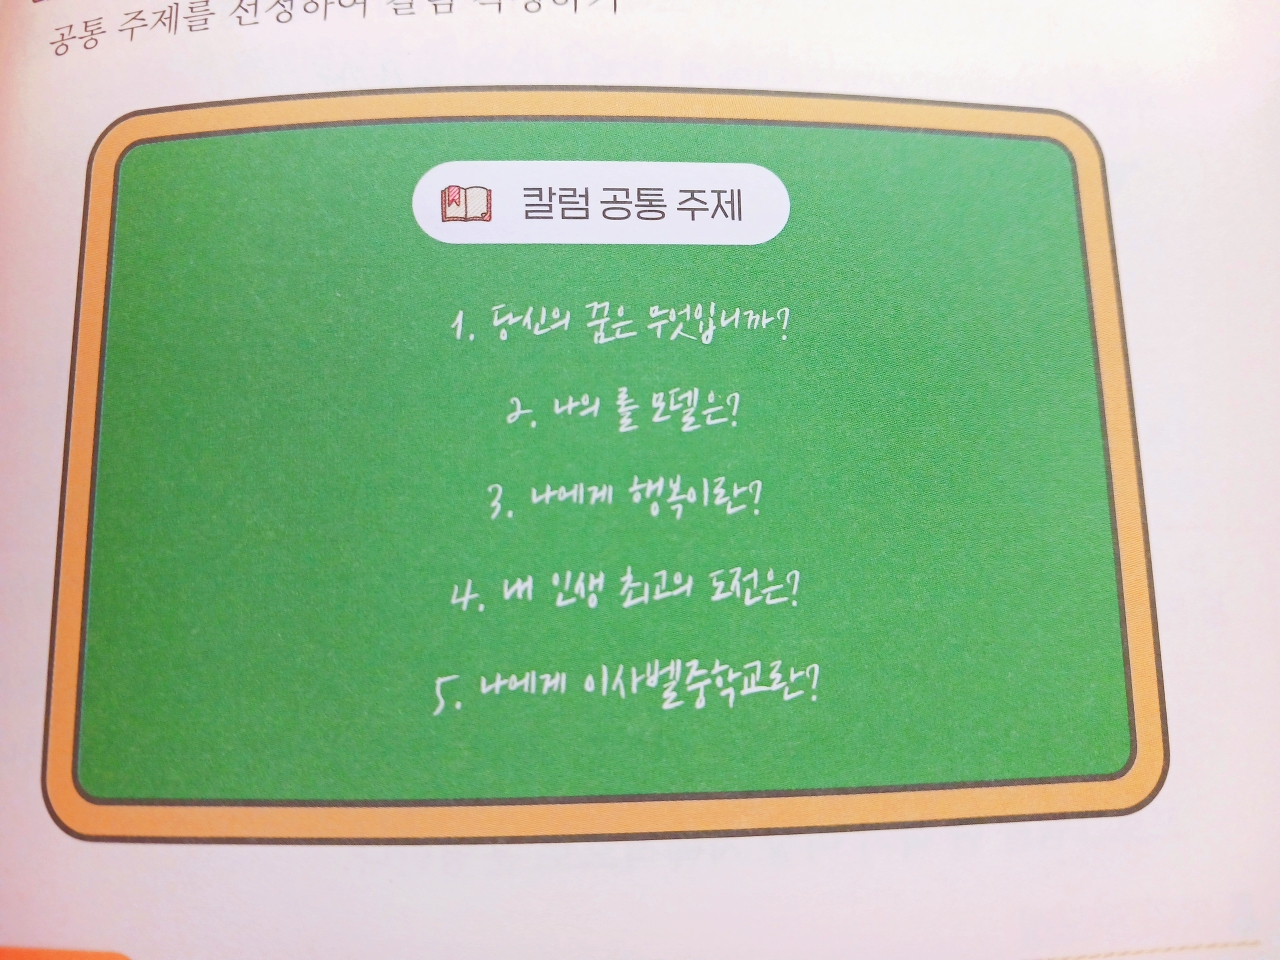 공통 주제를 선정하여 칼럼 작성하기
칼럼 공통 주제
1. 당신의 꿈은 무엇입니까?
2. 나의 롤 모델은?
3. 나에게 행복이란?
4. 내 인생 최고의 도전은?
5. 나에게 이사벨중학교란?